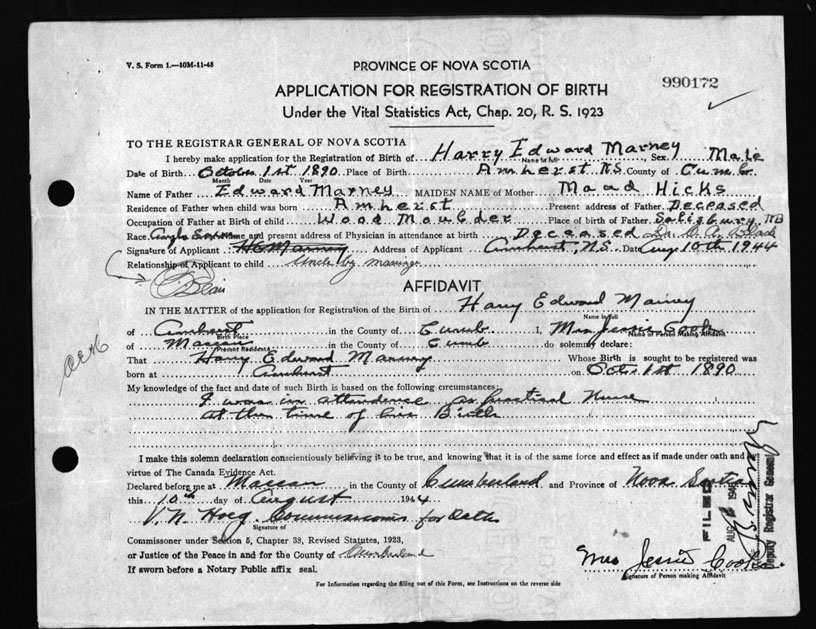 V. S. Form 1.—10M-11-43
PROVINCE OF NOVA SCOTIA
990172
APPLICATION FOR REGISTRATION OF BIRTH
Under the Vital Statistics Act, Chap. 20, R. S. 1923
TO THE REGISTRAR GENERAL OF NOVA SCOTIA
I hereby make application for the Registration of Birth of Harry Edward Marney Sex Male
Name in full
Date of Birth October 1st 1890 Place of Birth Amherst NS County of Cumb.
Month Date Year
Name of Father Edward Marney MAIDEN NAME of Mother Maad Hicks
Residence of Father when child was born Amherst Present address of Father Deceased
Occupation of Father at Birth of child Wood Moulder Place of birth of Father Salisbury, NB
Race Anglo Saxon Name and present address of Physician in attendance at birth Deceased Dr.
Signature of Applicant H E Marney Address of Applicant Amherst, N.S. Date Aug 10th 1944
Relationship of Applicant to child Uncle by marriage
AFFIDAVIT
IN THE MATTER of the application for Registration of the Birth of Harry Edward Marney
Name in full
of Amherst in the County of Cumb. I, Mrs Jessie Cooke
Birth Place Name of Person Making Affidavit
of Maccan in the County of Cumb do solemnly declare:
Present Residence
That Harry Edward Marney Whose Birth is sought to be registered was
born at Amherst on Oct. 1st 1890
My knowledge of the fact and date of such Birth is based on the following circumstances:
I was in attendence as practical Nurse
at the time of his Birth
I make this solemn declaration conscientiously believing it to be true, and knowing that it is of the same force and effect as if made under oath and
virtue of The Canada Evidence Act.
Declared before me at Maccan in the County of Cumberland and Province of Nova Scotia
this 10th day of August 1944
V. N. Hoeg Commissioner for Oaths
Signature of
Commissioner under Section 5, Chapter 38, Revised Statutes, 1923,
or Justice of the Peace in and for the County of Cumberland
If sworn before a Notary Public affix seal.
Mrs Jessie Cooke
Signature of Person making Affidavit
For Information regarding the filling out of this Form, see Instructions on the reverse side
FILED
AUG
Deputy Registrar General